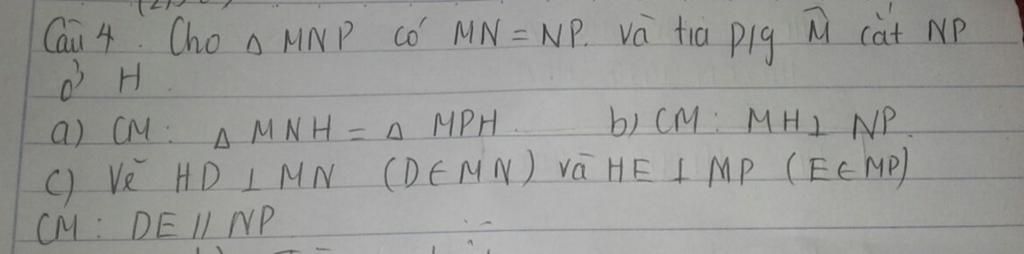 Câu 4. Cho Δ MNP có MN = NP. và tia p/g M̂ cắt NP
ở H.
a) CM: Δ MNH = Δ MPH. b) CM: MH ⊥ NP.
c) Vẽ HD ⊥ MN (D ∈ MN) và HE ⊥ MP (E ∈ MP)
CM: DE // NP